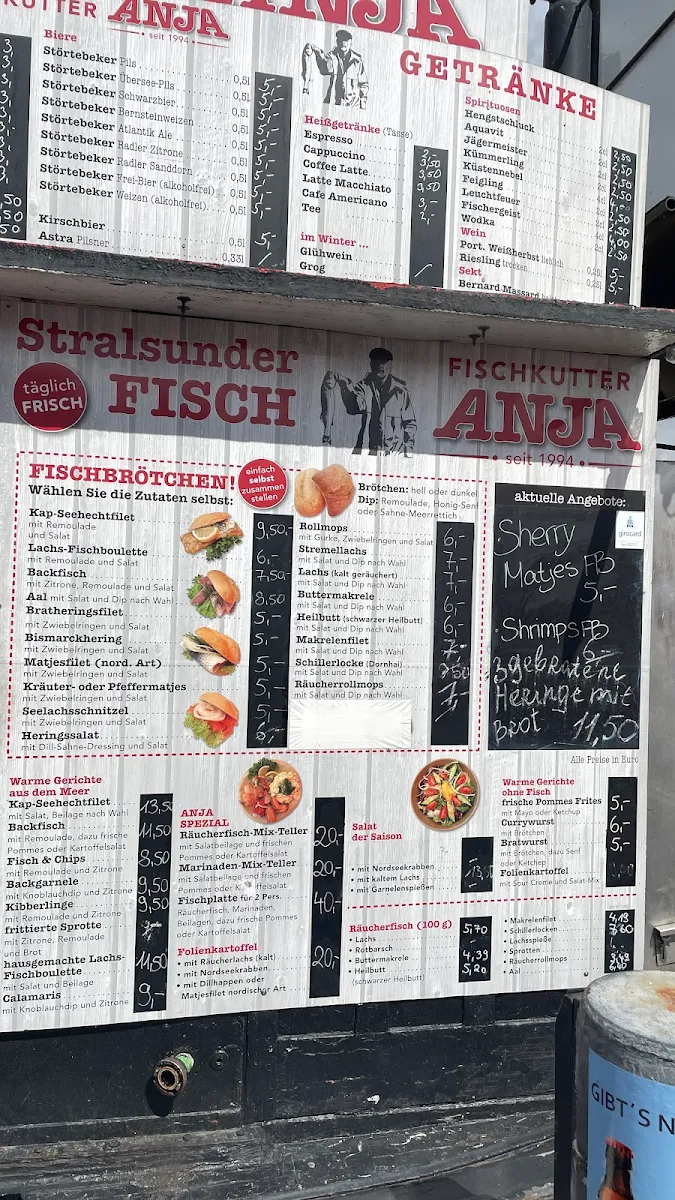 KUTTER ANJA
seit 1994
Biere
Störtebeker Pils 0,5l 5,-
Störtebeker Übersee-Pils 0,5l 5,-
Störtebeker Schwarzbier 0,5l 5,-
Störtebeker Bernsteinweizen 0,5l 5,-
Störtebeker Atlantik Ale 0,5l 5,-
Störtebeker Radler Zitrone 0,5l 5,-
Störtebeker Radler Sanddorn 0,5l 5,-
Störtebeker Frei-Bier (alkoholfrei) 0,5l 5,-
Störtebeker Weizen (alkoholfrei) 0,5l 5,-
Kirschbier 0,5l 5,-
Astra Pilsner 0,33l
GETRÄNKE
Heißgetränke (Tasse)
Espresso
Cappuccino
Coffee Latte
Latte Macchiato
Cafe Americano
Tee
im Winter ...
Glühwein
Grog
Spirituosen
Hengstschluck
Aquavit
Jägermeister
Kümmerling
Küstennebel
Feigling
Leuchtfeuer
Fischergeist
Wodka
Wein
Port. Weißherbst lieblich
Riesling trocken
Sekt
Bernard-Massard
Stralsunder
FISCH
täglich
FRISCH
FISCHKUTTER
ANJA
seit 1994
FISCHBRÖTCHEN!
Wählen Sie die Zutaten selbst:
einfach
selbst
zusammen
stellen
Brötchen: hell oder dunkel
Dip: Remoulade, Honig-Senf
oder Sahne-Meerrettich
Kap-Seehechtfilet 9,50,-
mit Remoulade
und Salat
Lachs-Fischboulette 6,-
mit Remoulade und Salat
Backfisch 7,50,-
mit Zitrone, Remoulade und Salat
Aal mit Salat und Dip nach Wahl 8,50
Bratheringsfilet 5,-
mit Zwiebelringen und Salat
Bismarckhering 5,-
mit Zwiebelringen und Salat
Matjesfilet (nord. Art) 5,-
mit Zwiebelringen und Salat
Kräuter- oder Pfeffermatjes 5,-
mit Zwiebelringen und Salat
Seelachsschnitzel 5,-
mit Zwiebelringen und Salat
Heringssalat
mit Dill-Sahne-Dressing und Salat
Rollmops 6,-
mit Gurke, Zwiebelringen und Salat
Stremellachs 7,-
mit Salat und Dip nach Wahl
Lachs (kalt geräuchert) 7,-
mit Salat und Dip nach Wahl
Buttermakrele 6,-
mit Salat und Dip nach Wahl
Heilbutt (schwarzer Heilbutt) 6,-
mit Salat und Dip nach Wahl
Makrelenfilet
mit Salat und Dip nach Wahl
Schillerlocke (Dornhai)
mit Salat und Dip nach Wahl
Räucherrollmops
mit Salat und Dip nach Wahl
aktuelle Angebote:
girocard
Sherry
Matjes FB
5,-
Shrimps FB
6,-
3 gebratene
Heringe mit
Brot 11,50
Alle Preise in Euro
Warme Gerichte
aus dem Meer
Kap-Seehechtfilet 13,50
mit Salat, Beilage nach Wahl
Backfisch 11,50
mit Remoulade, dazu frische
Pommes oder Kartoffelsalat
Fisch & Chips 8,50
mit Remoulade und Zitrone
Backgarnele 9,50
mit Knoblauchdip und Zitrone
Kibberlinge 9,50
mit Remoulade und Zitrone
frittierte Sprotte
mit Zitrone, Remoulade
und Brot
hausgemachte Lachs-
Fischboulette 11,50
mit Salat und Beilage
Calamaris 9,-
mit Knoblauchdip und Zitrone
ANJA
SPEZIAL
Räucherfisch-Mix-Teller 20,-
mit Salatbeilage und frischen
Pommes oder Kartoffelsalat
Marinaden-Mix-Teller 20,-
mit Salatbeilage und frischen
Pommes oder Kartoffelsalat
Fischplatte für 2 Pers. 40,-
Räucherfisch, Marinaden,
Beilagen, dazu frische Pommes
oder Kartoffelsalat
Folienkartoffel 20,-
• mit Räucherlachs (kalt)
• mit Nordseekrabben
• mit Dillhappen oder
Matjesfilet nordischer Art
Salat
der Saison
• mit Nordseekrabben
• mit kaltem Lachs
• mit Garnelenspießen
Warme Gerichte
ohne Fisch
frische Pommes Frites 5,-
mit Mayo oder Ketchup
Currywurst 6,-
mit Brötchen
Bratwurst 5,-
mit Brötchen, dazu Senf
oder Ketchup
Folienkartoffel
mit Sour Creme und Salat-Mix
Räucherfisch (100 g)
• Lachs 5,70
• Rotbarsch -
• Buttermakrele 4,39
• Heilbutt 5,20
(schwarzer Heilbutt)
• Makrelenfilet 4,19
• Schillerlocken 7,60
• Lachsspieße
• Sprotten
• Räucherrollmops
• Aal
GIBT'S N